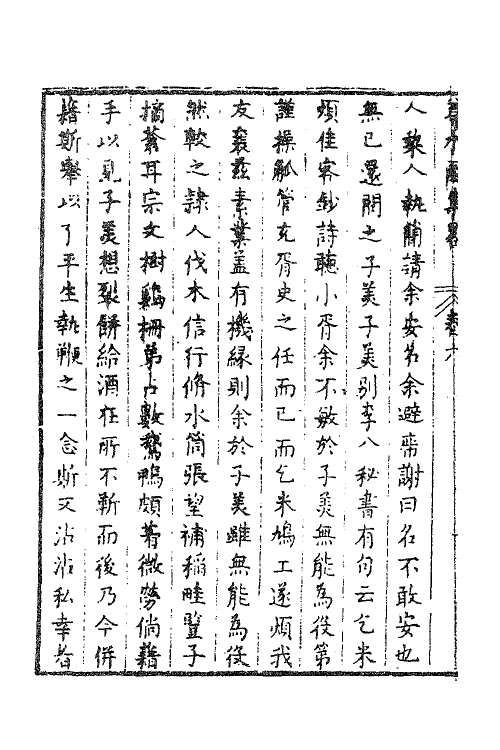 卷六
人黎人執簡請余安名余避席謝曰名不敢安也
無已還問之子美子美別李八秘書有句云乞米
煩佳客鈔詩聽小胥余不敏於子美無能為役第
謹操觚管充胥史之任而已而乞米鳩工遂煩我
友襄茲素業蓋有機緣則余於子美雖無能為役
然較之隸人伐木信行脩水筒張望補稻畦豎子
摘蒼耳宗文樹雞柵第占數鵞鴨頗著微勞倘藉
手以見子美想裂餅給酒在所不靳而後乃今併
籍斯舉以了平生執鞭之一念斯又沾沾私幸者